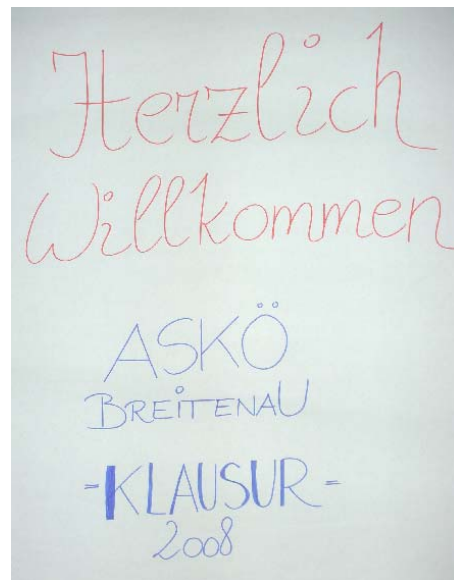 Herzlich
Willkommen
ASKÖ
BREITENAU
=KLAUSUR=
2008